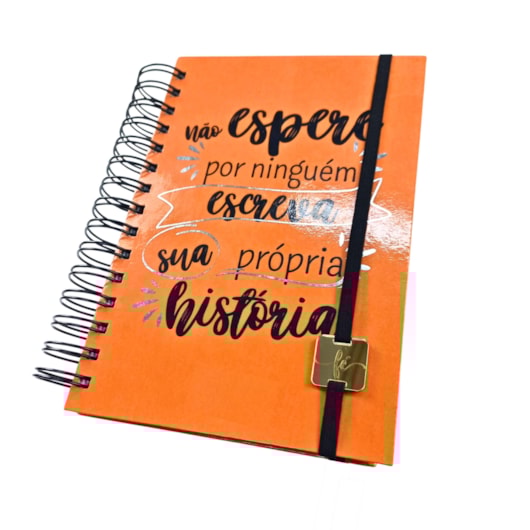 não espere
por ninguém
escreva
sua própria
história
fé